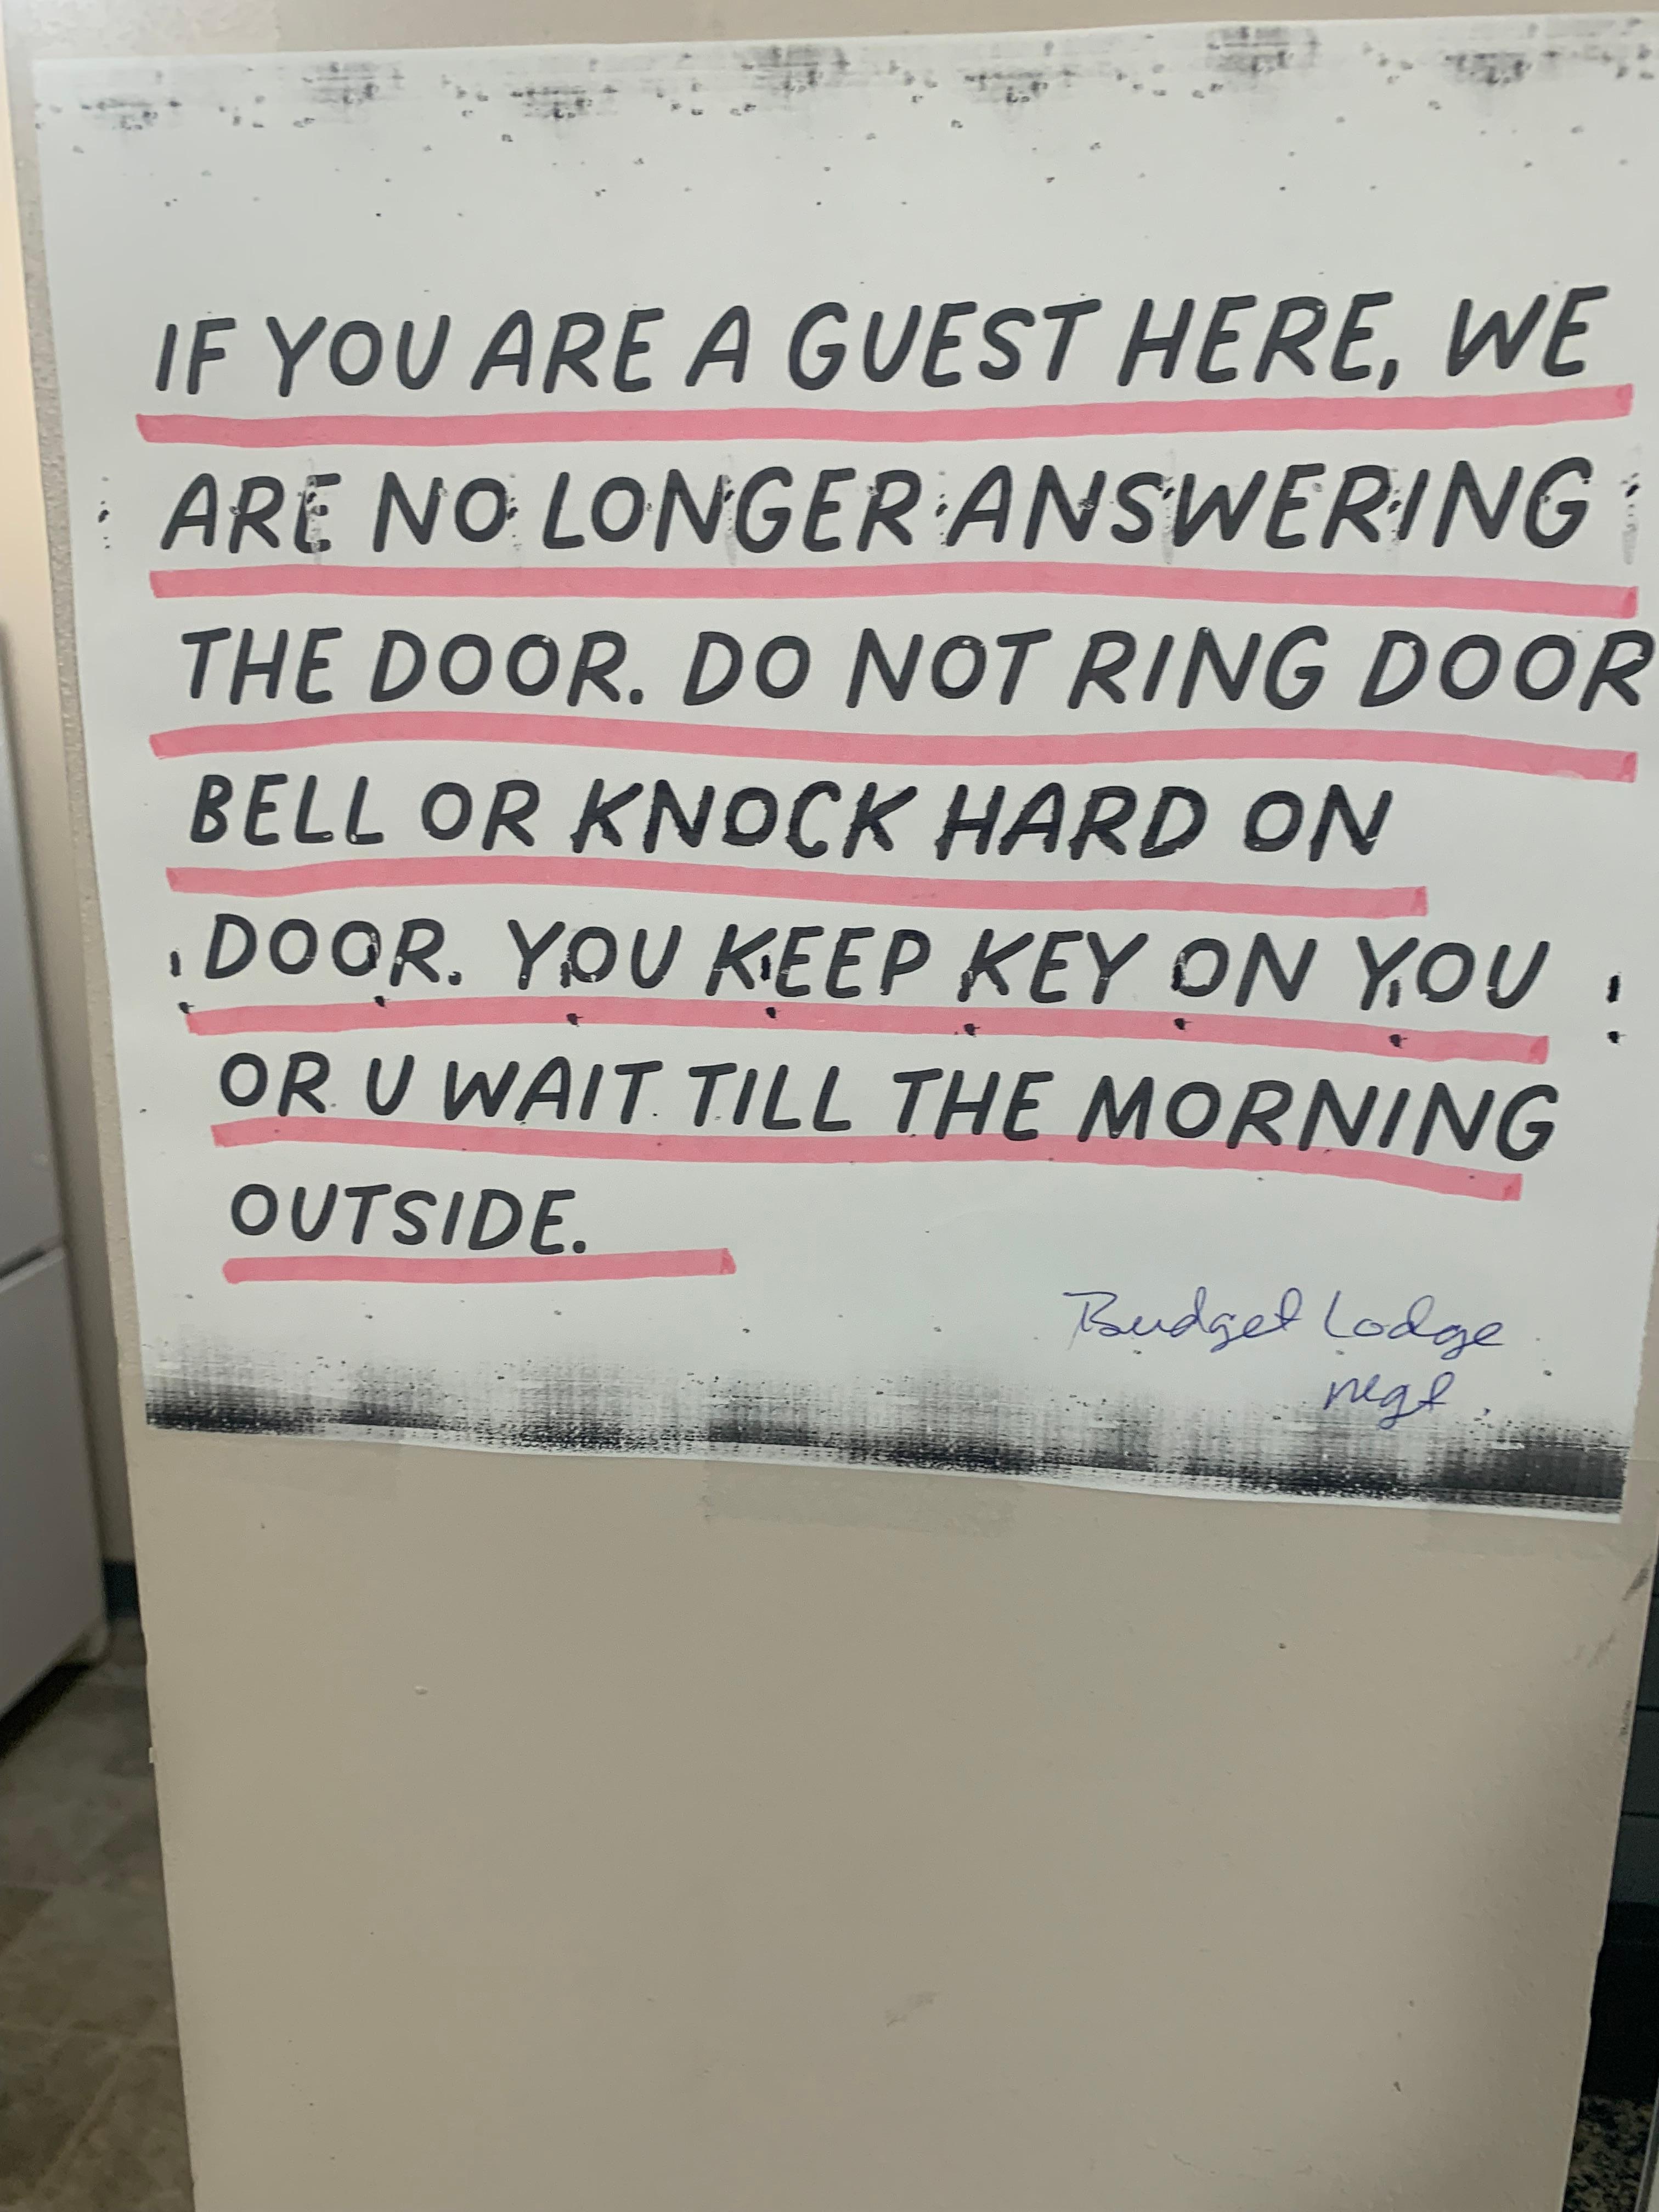 IF YOU ARE A GUEST HERE, WE
ARE NO LONGER ANSWERING
THE DOOR. DO NOT RING DOOR
BELL OR KNOCK HARD ON
DOOR. YOU KEEP KEY ON YOU
OR U WAIT TILL THE MORNING
OUTSIDE.
Budget Lodge
Mgt.